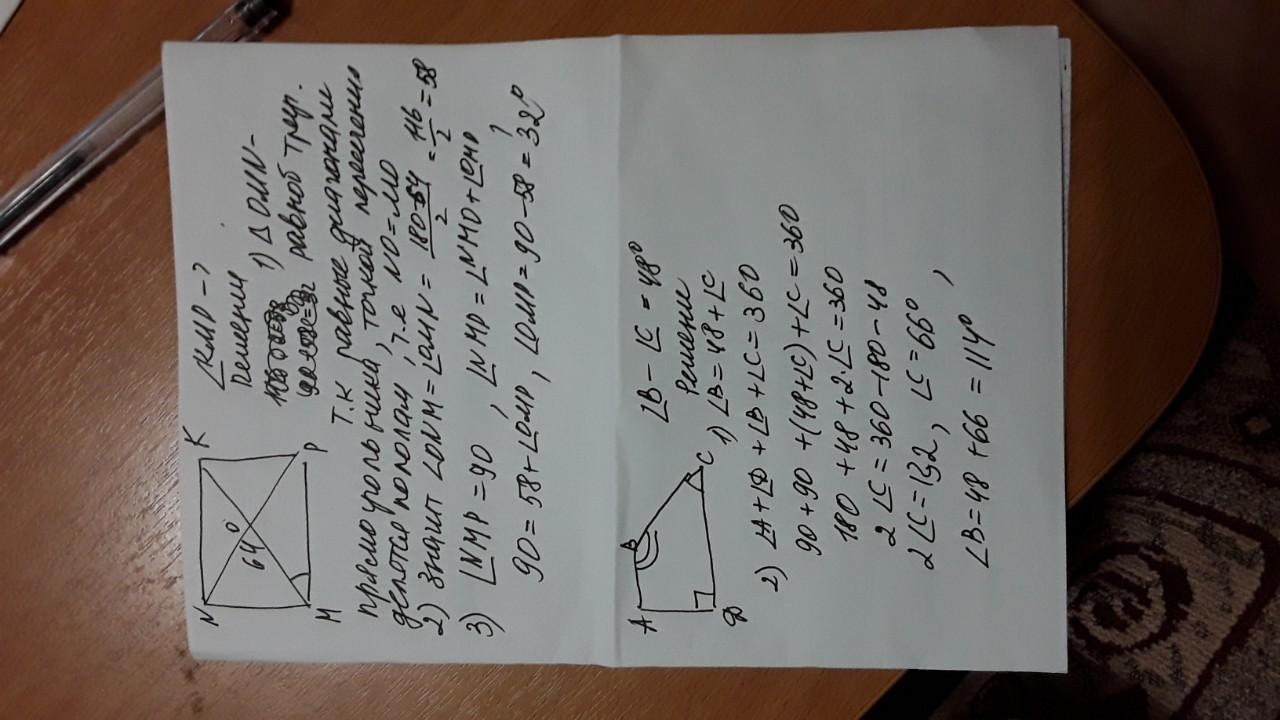 N
K
64
O
M
P
∠KMP - ?
Решение
1) Δ OMN -
равноб треуг.
т.к равные диагонали
прямоугольника, точкой пересечения
делятся пополам, т.е NO=MO
2) Значит ∠ONM=∠OMN = (180-64)/2 = 116/2 = 58
3) ∠NMP=90, ∠NMP=∠NMO+∠OMP,
90=58+∠OMP, ∠OMP=90-58=32°
A
B
C
D
∠B - ∠C = 48°
Решение
1) ∠B=48+∠C
2) ∠A+∠D+∠B+∠C=360
90+90+(48+∠C)+∠C=360
180+48+2·∠C=360
2∠C=360-180-48
2∠C=132, ∠C=66°
∠B=48+66=114°,